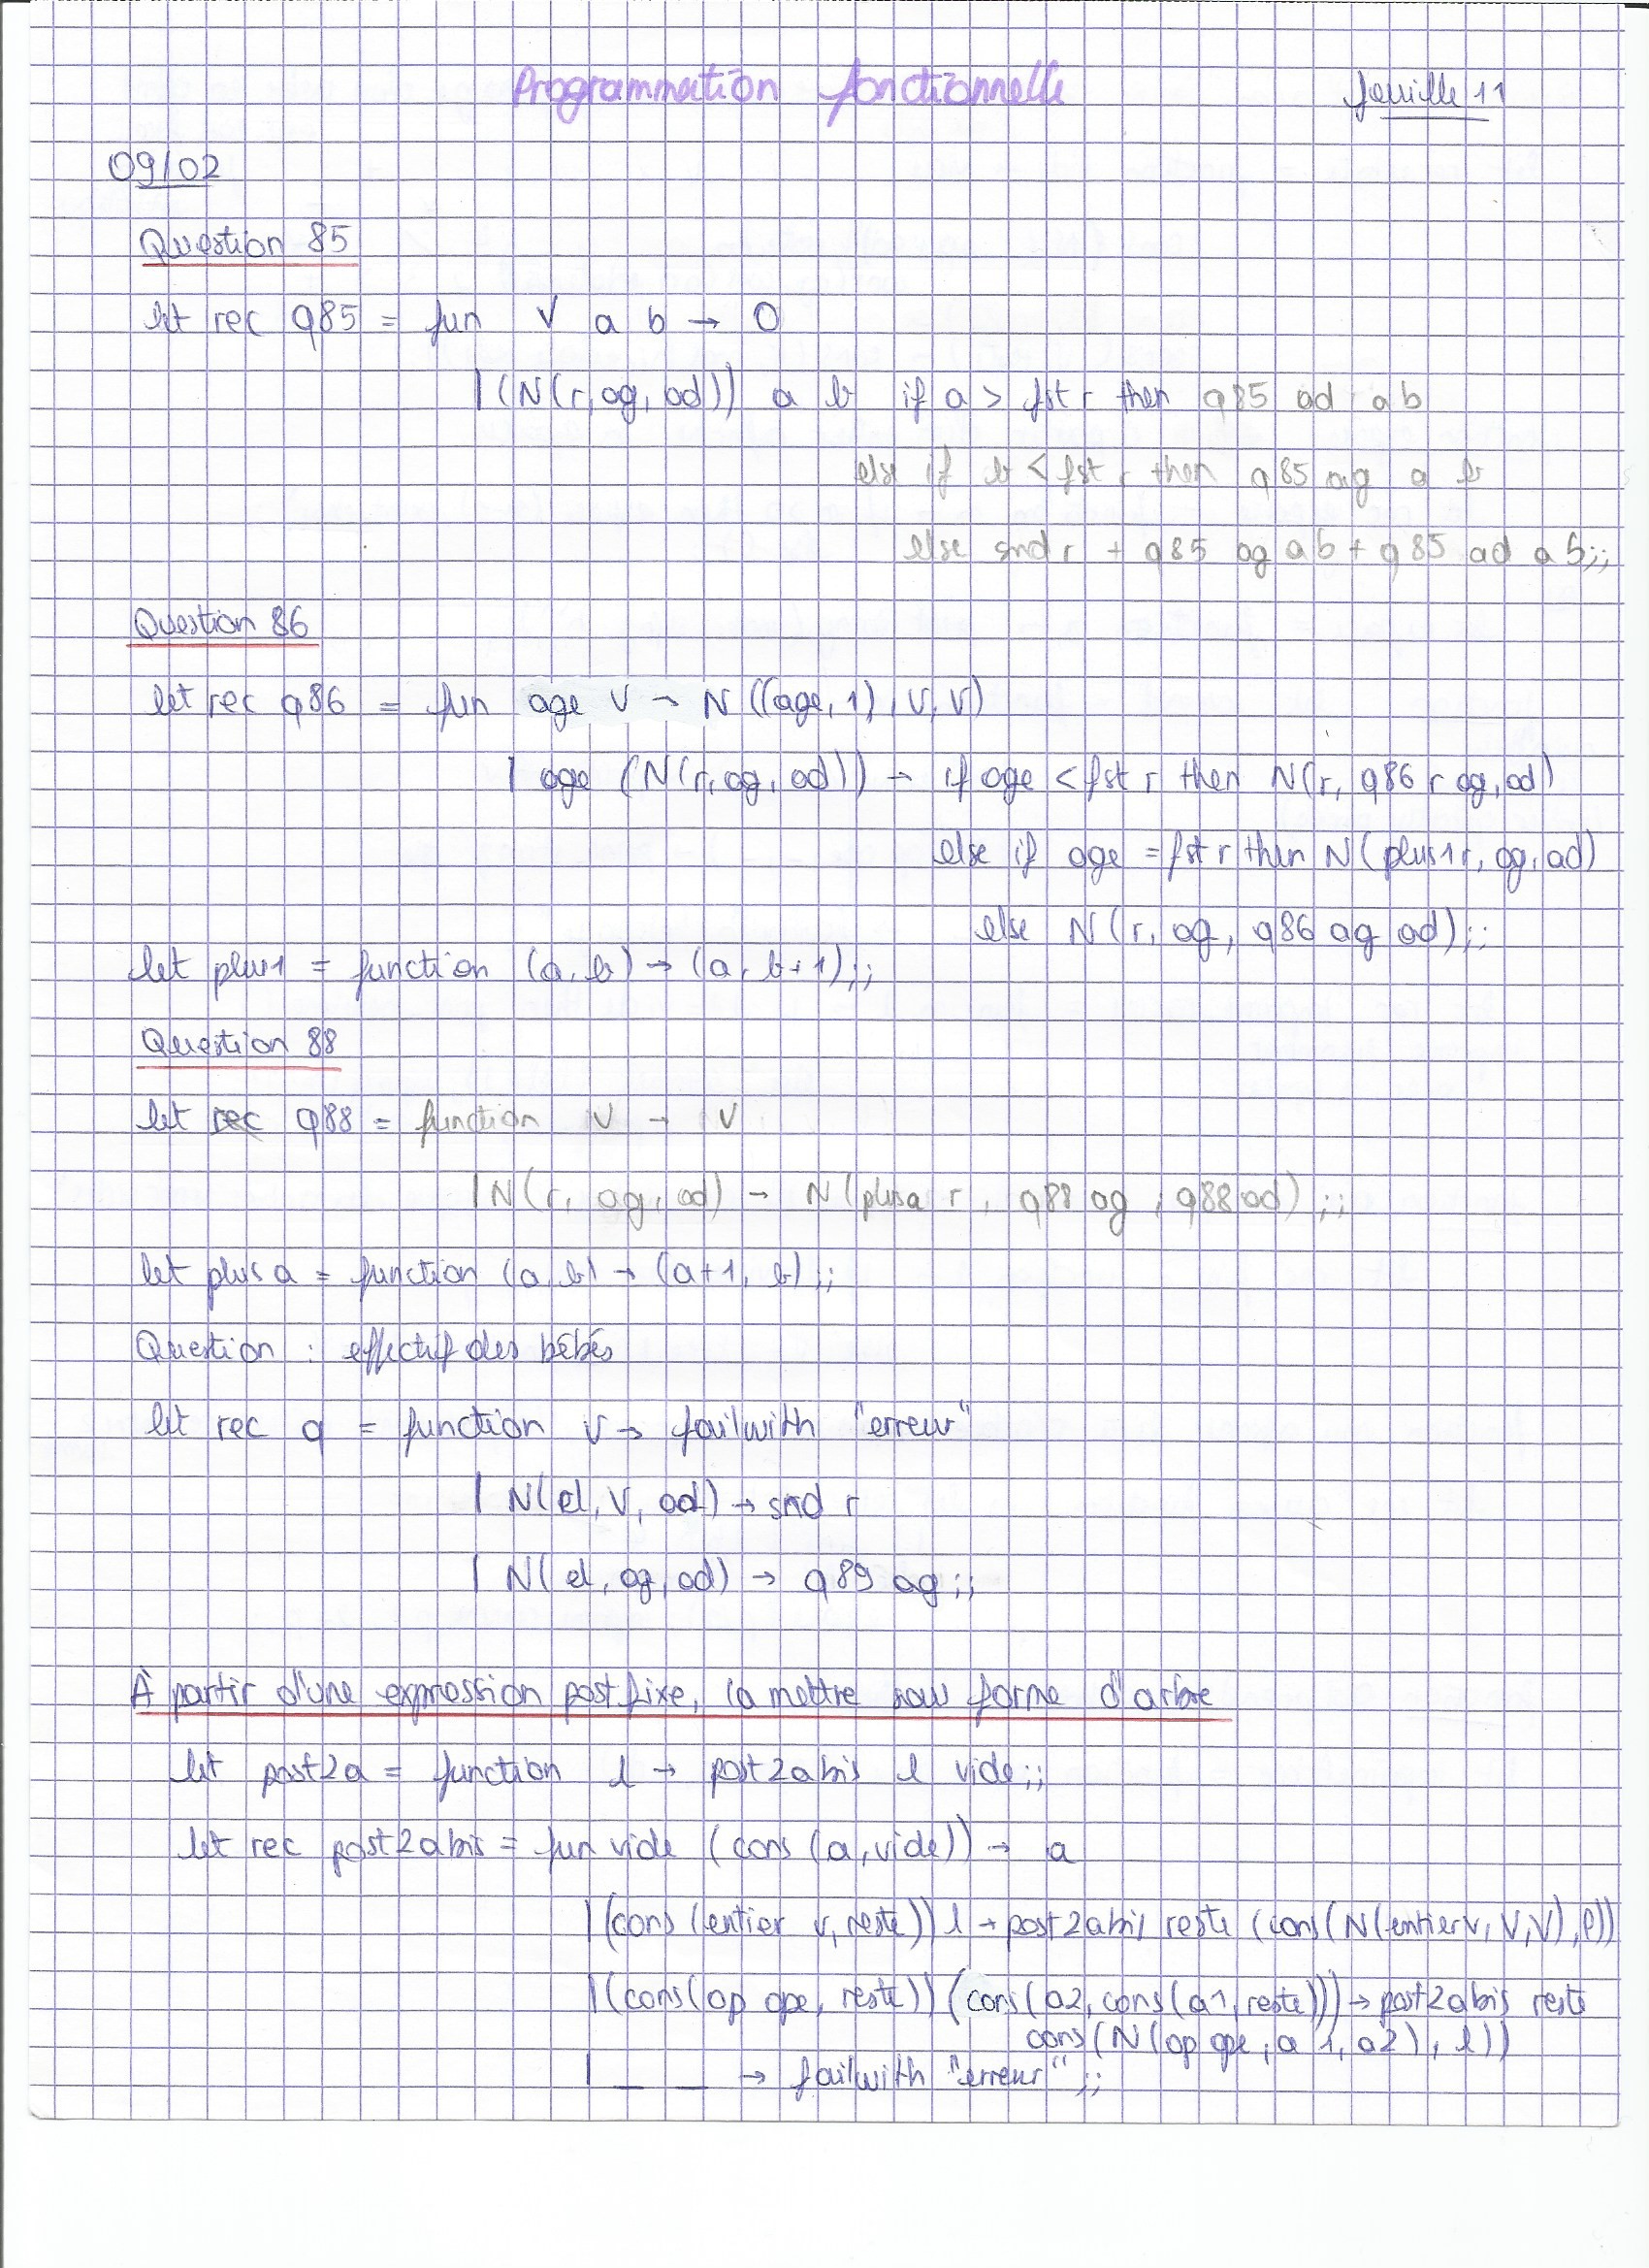 Programmation fonctionnelle
feuille 11
09/02
Question 85
let rec q85 = fun V a b → 0
|(N(r, ag, ad)) a b if a > fst r then q85 ad a b
else if b < fst r then q85 ag a b
else snd r + q85 ag a b + q85 ad a b;;
Question 86
let rec q86 = fun age V → N((age, 1), V, V)
| age (N(r, ag, ad)) → if age < fst r then N(r, q86 r ag, ad)
else if age = fst r then N(plus1 r, ag, ad)
else N(r, ag, q86 ag ad);;
let plus1 = function (a, b) → (a, b+1);;
Question 88
let rec q88 = function V → V
|N(r, ag, ad) → N(plusa r, q88 ag, q88 ad);;
let plusa = function (a, b) → (a+1, b);;
Question : effectif des bébés
let rec q = function V → failwith "erreur"
| N(el, V, ad) → snd r
| N(el, ag, ad) → q89 ag;;
À partir d'une expression postfixe, la mettre sous forme d'arbre
let post2a = function l → post2abis l vide;;
let rec post2abis = fun vide (cons (a, vide)) → a
|(cons (entier v, reste)) l → post2abis reste (cons(N(entier v, V, V), l))
|(cons(op ope, reste)) (cons(a2, cons(a1, reste))) → post2abis reste
cons(N(op ope, a1, a2), l))
| _ _ → failwith "erreur";;